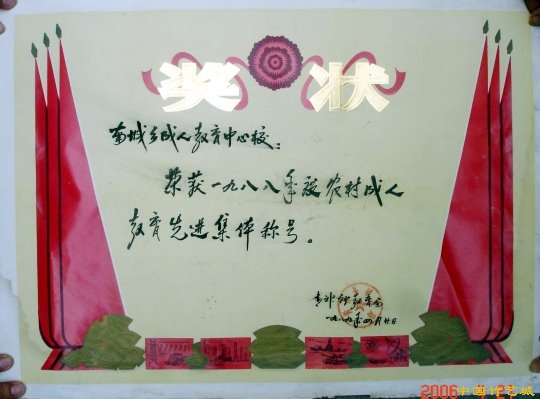 奖 状
南城乡成人教育中心校:
荣获一九八八年度农村成人
教育先进集体称号。
教育局
一九八九年四月廿日
2006中国竹艺城